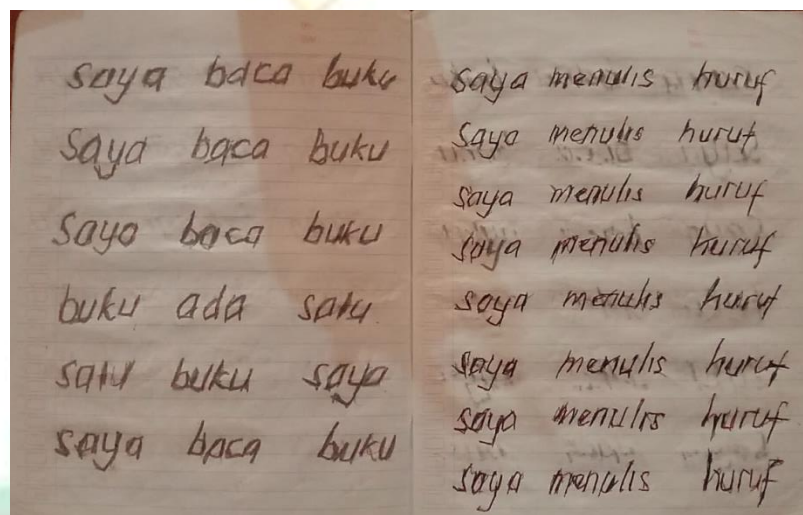 saya baca buku
saya baca buku
saya baca buku
buku ada satu
satu buku saya
saya baca buku
saya menulis huruf
saya menulis huruf
saya menulis huruf
saya menulis huruf
saya menulis huruf
saya menulis huruf
saya menulis huruf
saya menulis huruf